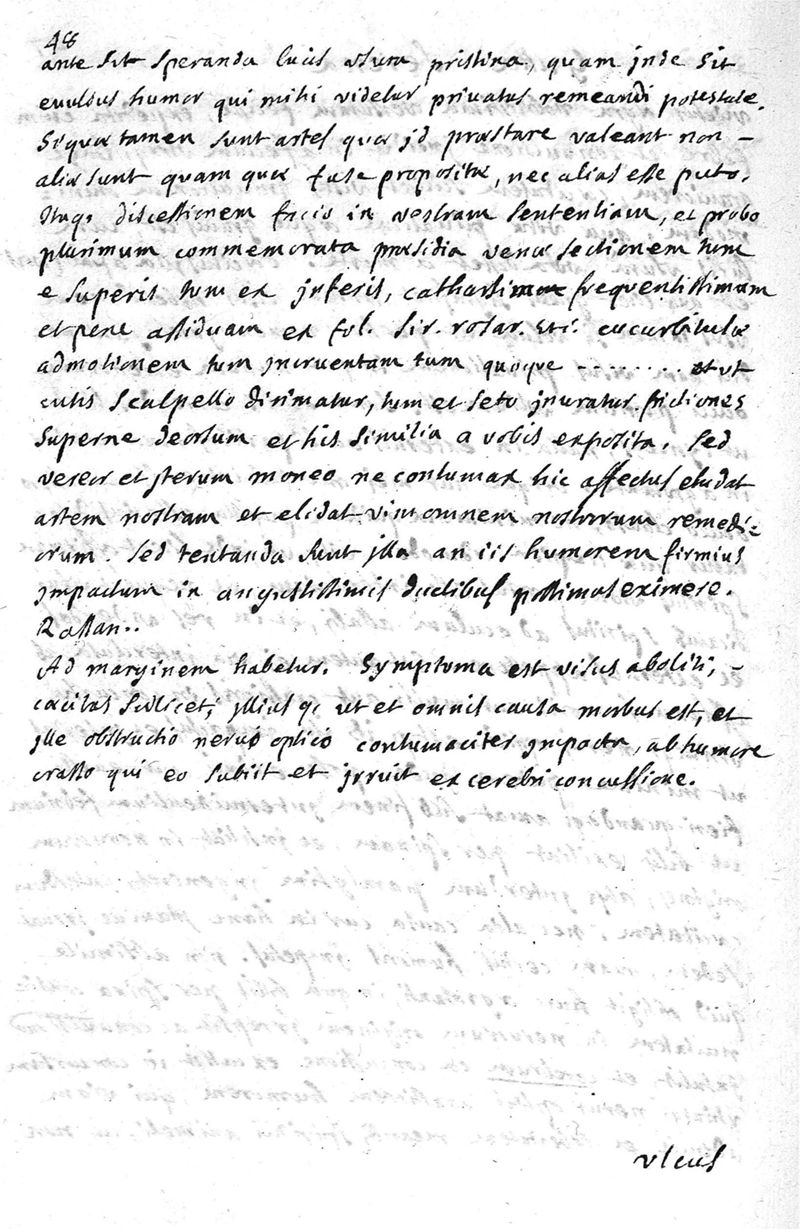 48
ante sit speranda lucis usura pristina, quam inde sit
evulsus humor qui mihi videtur privatus remeandi potestate.
Siquæ tamen sunt artes quæ id præstare valeant non –
aliæ sunt quam quæ fuse propositæ, nec alias esse puto.
Itaq. discessionem facio in vestram sententiam, et probo
plurimum commemorata præsidia venæ sectionem tum
e superis tum ex inferis, catharsim frequentissimam
et pene assiduam ex fol. sir. rosar. cucurbitulæ
admotionem tum incruentam tum quoque ........ et ut
cutis scalpello dirimatur, tum et seto inuratur. frictiones
superne deorsum et his similia a vobis exposita. Sed
vereor et iterum moneo ne contumax hic affectus eludat
artem nostram et elidat vim omnem nostrorum remedi=
orum. Sed tentanda sunt illa an iis humorem firmius
impactum in angustissimis ductibus possimus eximere.
Rassan..
Ad marginem habetur. Symptoma est visus aboliti, –
cæcitas scilicet, illius q. ut et omnis causa morbus est, et
ille obstructio nervo optico contumaciter impacta, ab humore
crasso qui eo subiit et irruit ex cerebri concussione.
vlcus